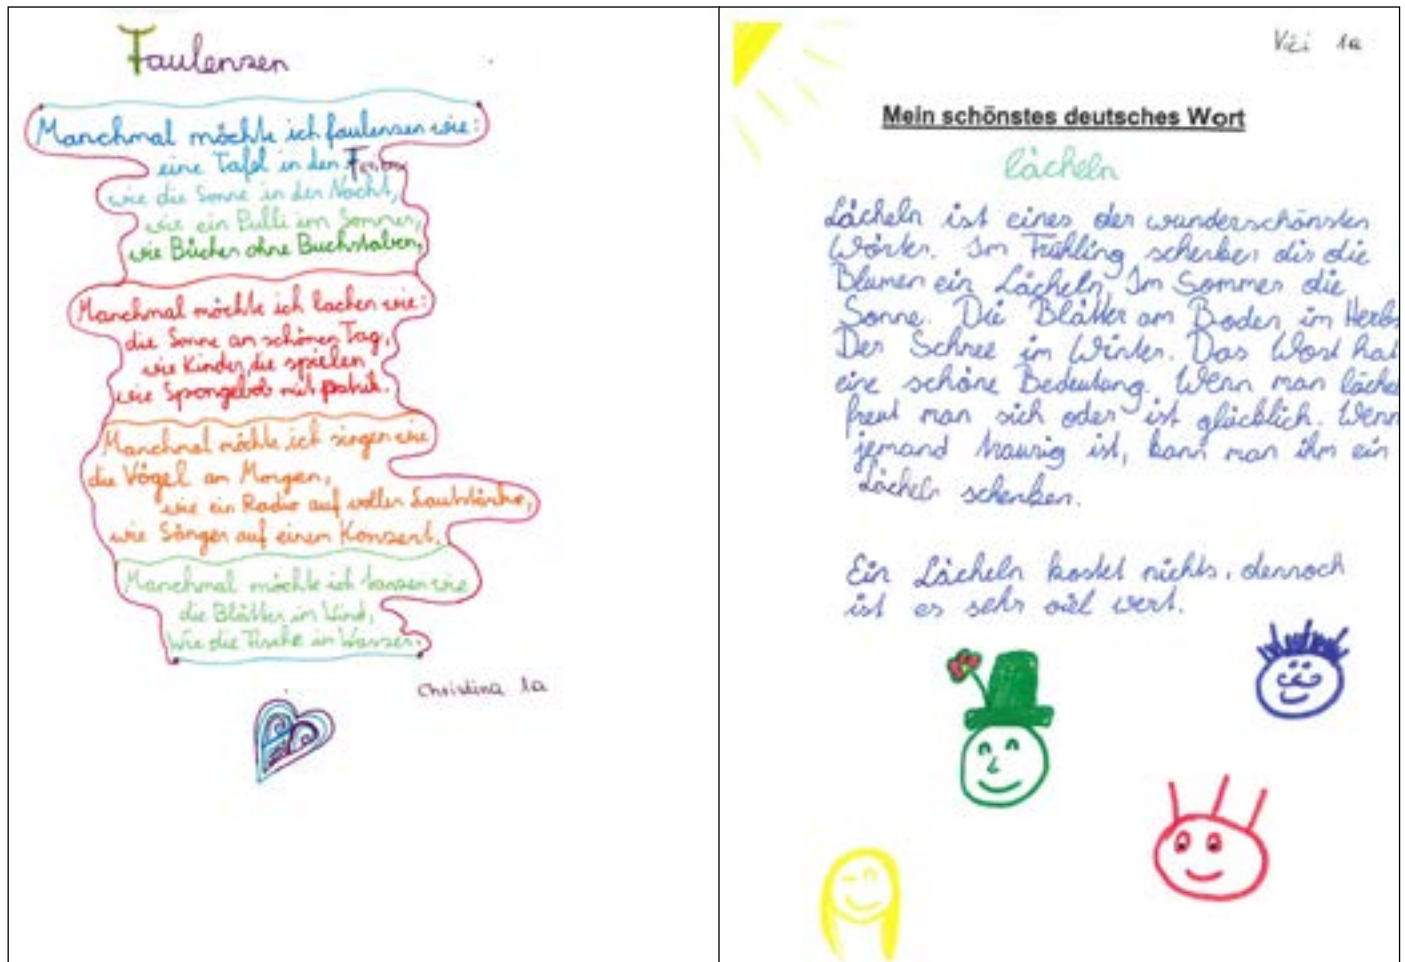 Faulenzen
Manchmal möchte ich faulenzen wie:
eine Tafel in den Ferien,
wie die Sonne in der Nacht,
wie ein Pulli im Sommer,
wie Bücher ohne Buchstaben,
Manchmal möchte ich lachen wie:
die Sonne am schönen Tag,
wie Kinder, die spielen,
wie Spongebob mit patrik.
Manchmal möchte ich singen wie
die Vögel am Morgen,
wie ein Radio auf voller Lautstärke,
wie Sänger auf einem Konzert.
Manchmal möchte ich tanzen wie
die Blätter im Wind,
Wie die Fische im Wasser.
Christina 1a
Vici 1a
Mein schönstes deutsches Wort
lächeln
Lächeln ist eines der wunderschönsten
Wörter. Im Frühling schenken dir die
Blumen ein Lächeln. Im Sommer die
Sonne. Die Blätter am Boden im Herbs
Der Schnee im Winter. Das Wort hat
eine schöne Bedeutung. Wenn man läche
freut man sich oder ist glücklich. Wenn
jemand traurig ist, kann man ihm ein
Lächeln schenken.
Ein Lächeln kostet nichts, dennoch
ist es sehr viel wert.